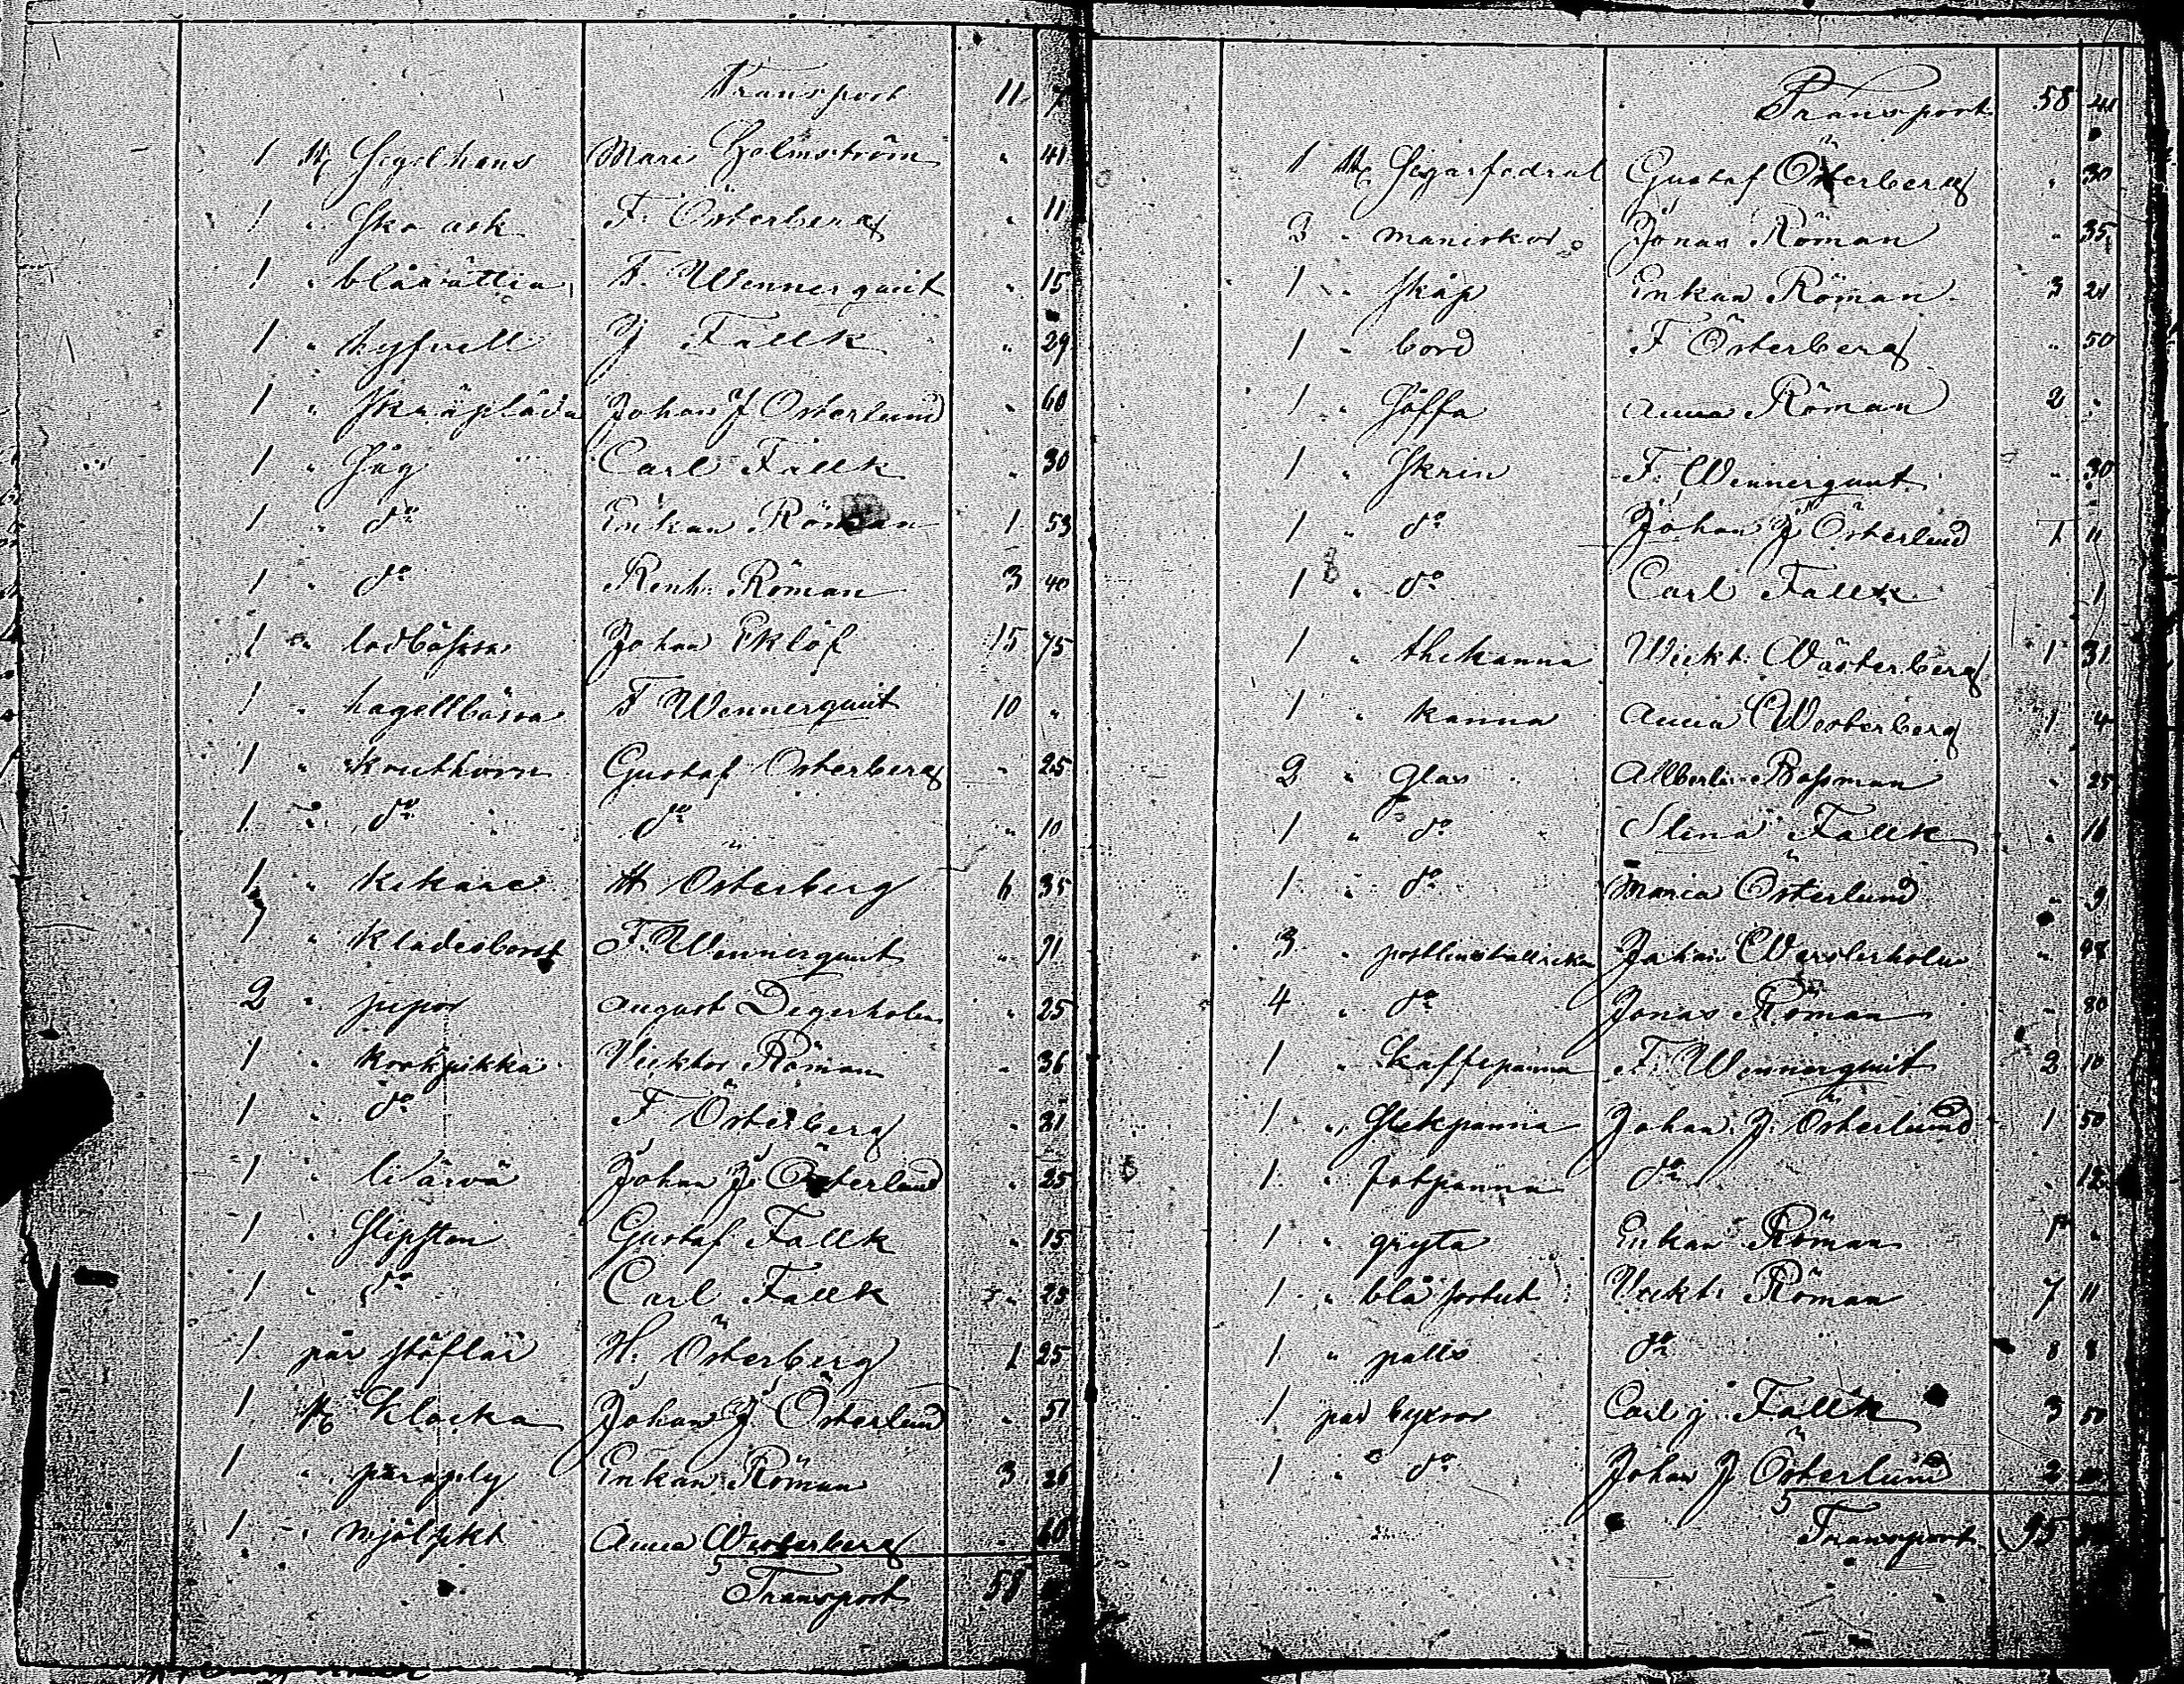 Transport 11 7
1 st Segelhans Mari Holmström " 41
1 " Sko ask F. Österberg " 11
1 " F. Wennerquist " 15
1 " hyfvell J Fallk " 29
1 " Skräplåda Johan J Österlund " 60
1 " Såg Carl Fallk " 30
1 " do Enkan Röman 1 53
1 " do Renh. Röman 3 40
1 " lodbössa Johan Eklöf 15 75
1 " hagellbössa F Wennerquist 10 "
1 " kruthorn Gustaf Österberg " 25
1 " do do " 10
1 " kikare H Österberg 6 35
1 " kladesborst F. Wennerquist " 71
2 " pipor August Degerholm " 25
1 " korkpikka Vicktor Röman " 36
1 " do F Österberg " 21
1 " Johan J. Österlund " 25
1 " Slipsten Gustaf Fallk " 15
1 " do Carl Fallk " 25
1 par stöflar H. Österberg 1 25
1 st Klocka Johan J Österlund " 51
1 " paraply Enkan Röman 3 26
1 " Anna Westerberg " 60
Transport 58
Transport 58 41
1 st Sigarfodral Gustaf Österberg " 30
3 " maniskor Jonas Röman " 35
1 " Skåp Enkan Röman 3 21
1 " bord F Österberg " 50
1 " Söffa Anna Röman 2 "
1 " Skrin F. Wennerquist " 30
1 " do Johan J Österlund 1 11
1 " do Carl Fallk 1
1 " thekanna Wickt. Wästerberg 1 31
1 " kanna Anna Westerberg 1 4
2 " Glas " 25
1 " do Stina Fallk " 16
1 " do Maria Österlund " 9
3 " postlinstallrikar Johan Westerholm " 48
4 " do Jonas Röman " 80
1 " Kaffepanna F. Wennerquist 2 10
1 " Stekpanna Johan J. Österlund 1 50
1 " do " 12
1 " gryta Enkan Röman 1 "
1 " blå sortut Vickt. Röman 7 11
1 " palls do 8 8
1 par byxror Carl j Fallk 3 50
1 " " do Johan J Österlund 2
Transport 95